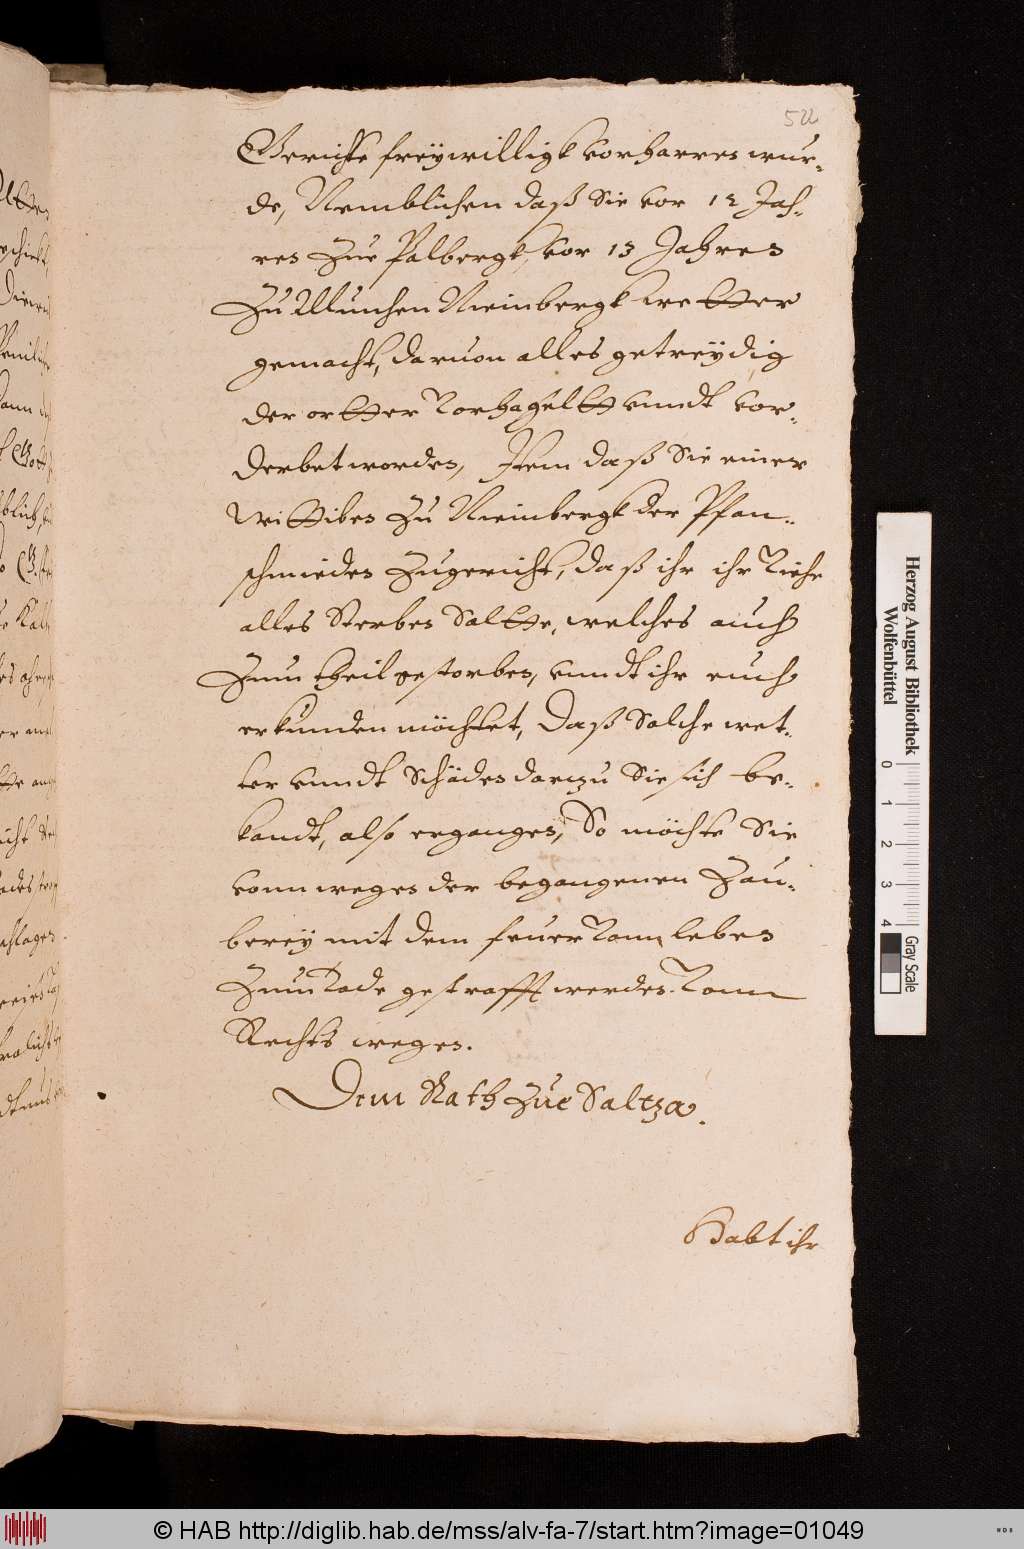 522
Gerichte freÿwilligk vorharren wur-
de, Nemblichen daß Sie vor 12 Jah-
ren Zue Palbergk, vor 13 Jahren
Zu Munchen Nienbergk wetter
gemacht, daruon alles getreÿdig
der ortter vorhagelt vnndt vor-
derbet worden, Item daß Sie einer
wittiben Zu Nienbergk der Pfan-
schmieden Zugericht, daß ihr ihr Viehe
alles Sterben Saltte, welches auch
Zum theil gestorben, vnndt ihr euch
erkunden möchtet, Daß Solche wet-
ter vnndt Schäden darzu Sie sich be-
kandt, also erganngen, So möchte Sie
vonn wegen der begangenen Zau-
bereÿ mit dem feuer vom leben
Zum Tode gestrafft werden. Vonn
Rechts wegen.
Dem Rath Zue Saltza.
Habt ihr
Herzog August Bibliothek
Wolfenbüttel
0 1 2 3 4 Gray Scale
© HAB http://diglib.hab.de/mss/alv-fa-7/start.htm?image=01049